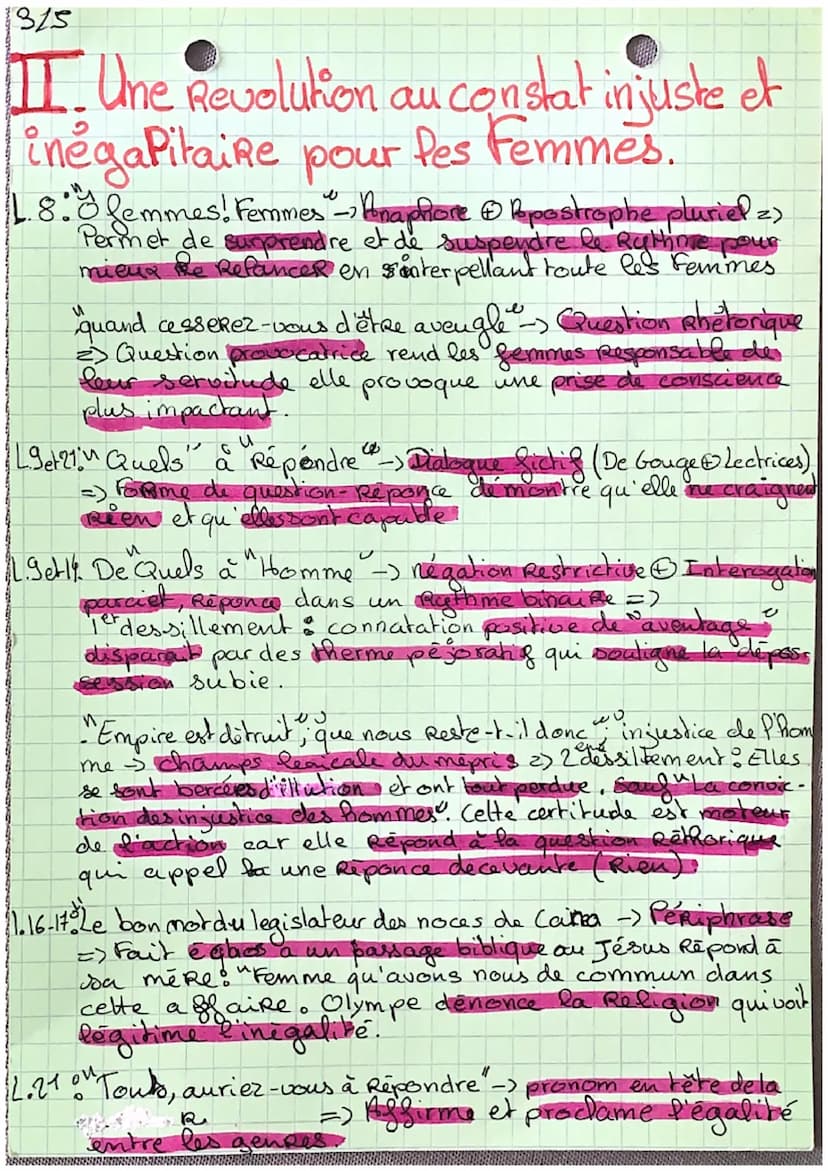 3/5
II. Une Revolution au constat injuste et
inégalitaire pour les Femmes.
L.8: "Ô femmes! Femmes" -> Anaphore ⊕ Apostrophe pluriel =>
Permet de surprendre et de suspendre le Rythme pour
mieux le Relancer en interpellant toute les Femmes
"quand cesserez-vous d'être aveugle" -> Question Rhétorique
=> Question provocatrice rend les femmes Responsable de
leur servitude elle provoque une prise de conscience
plus impactant.
L.9et21: "Quels" à "Répondre" -> Dialogue fictif (De Gouge ⊕ Lectrices)
=> Forme de question-Réponce démontre qu'elle ne craignent
Rien et qu'elles sont capable
L.9et14. De "Quels à "Homme" -> négation Restrictive ⊕ Interogation
parciel, Réponce dans un Rythme binaire =>
1er dessillement : connatation positive de "aventage"
disparait par des therme péjoratif qui souligne la dépos-
session subie.
- "Empire est détruit"; "que nous Reste-t-il donc"; "injustice de l'hom
me -> champs lexicale du mépris => 2ème dessiltement : Elles
se sont bercées d'illution et ont tout perdue. Sauf "La convic-
tion des injustice des hommes". Cette certitude est moteur
de l'action car elle Répond à la question Réthorique
qui appel une Réponce decevante (Rien)
l.16-17: "Le bon mot du legislateur des noces de Cana -> Périphrase
=> Fait eghos à un passage biblique ou Jésus Répond à
sa mère: "Femme qu'avons nous de commun dans
cette affaire. Olympe dénonce la Religion qui voit
légitime l'inégalité.
L.21 : "Tout, auriez-vous à Répondre" -> pronom en tête de la
R => Affirme et proclame l'égalité
entre les genres